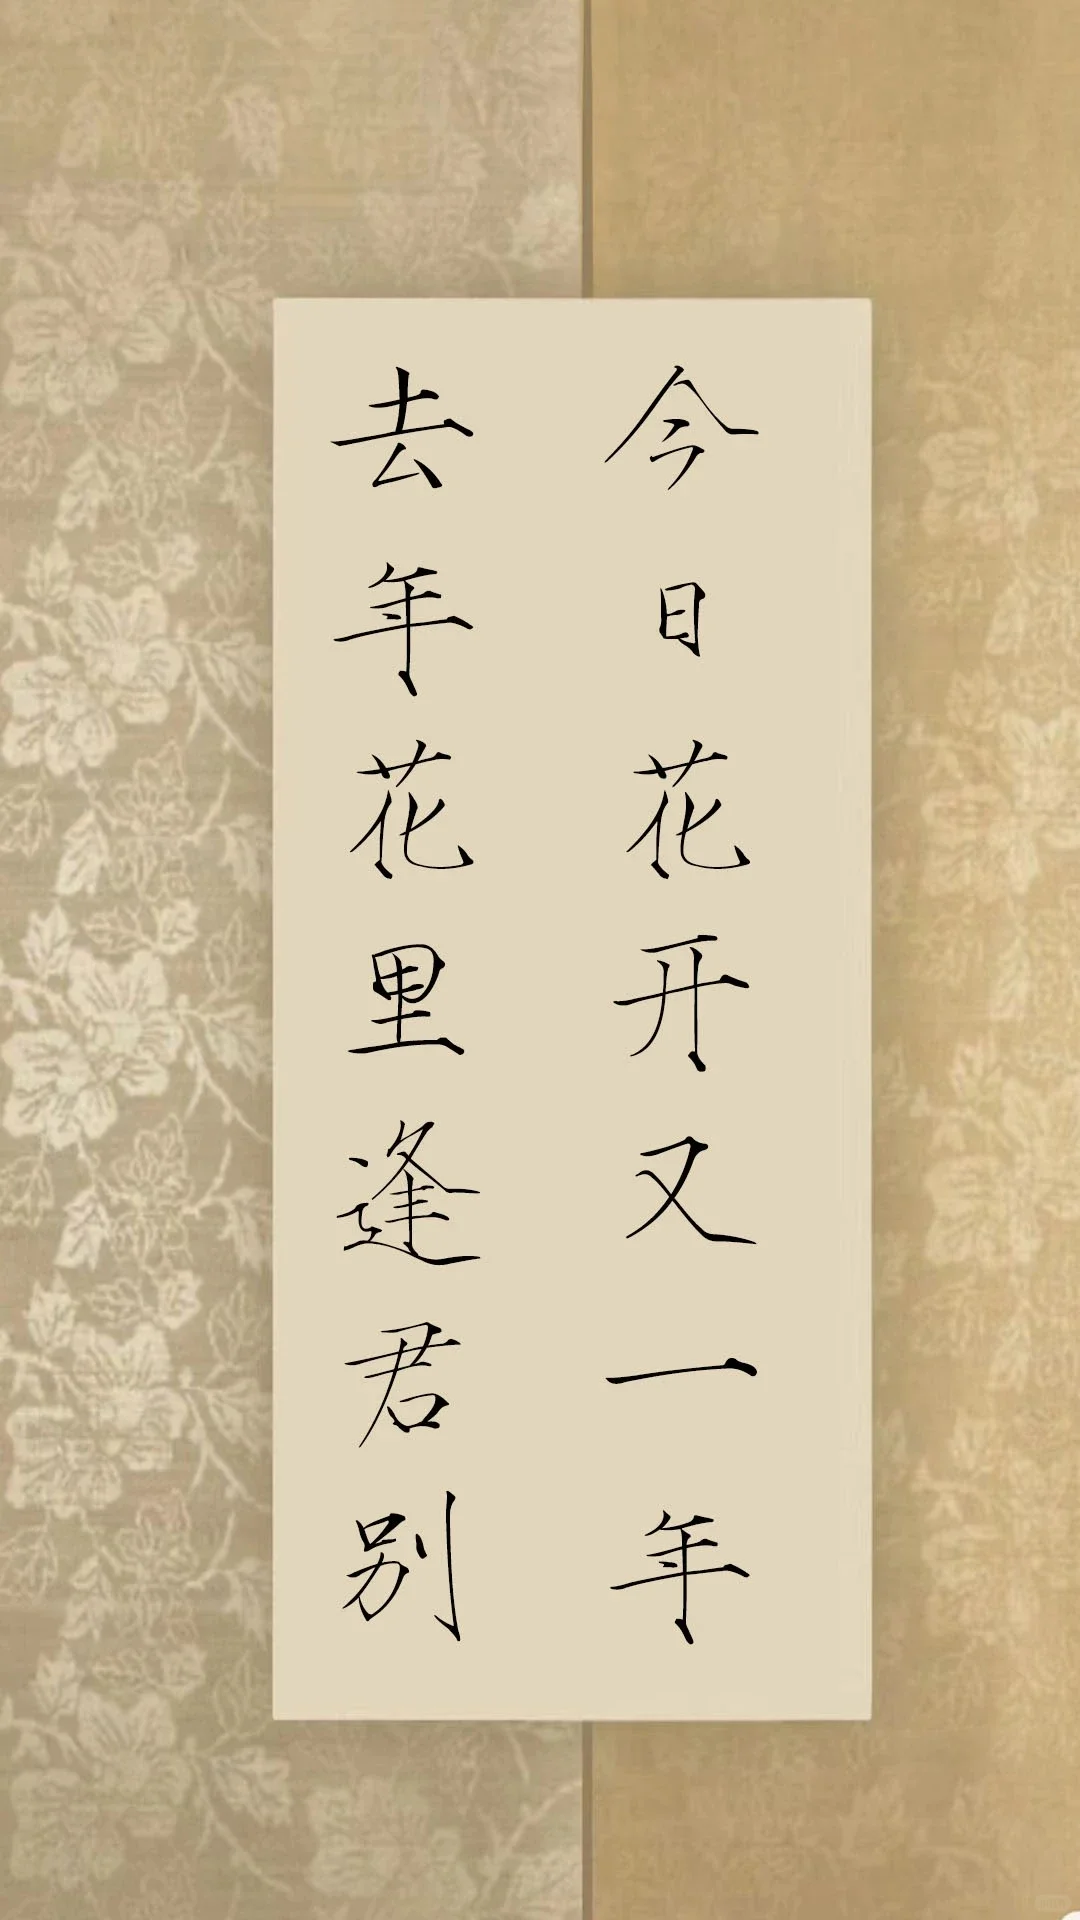 今日花开又一年
去年花里逢君别